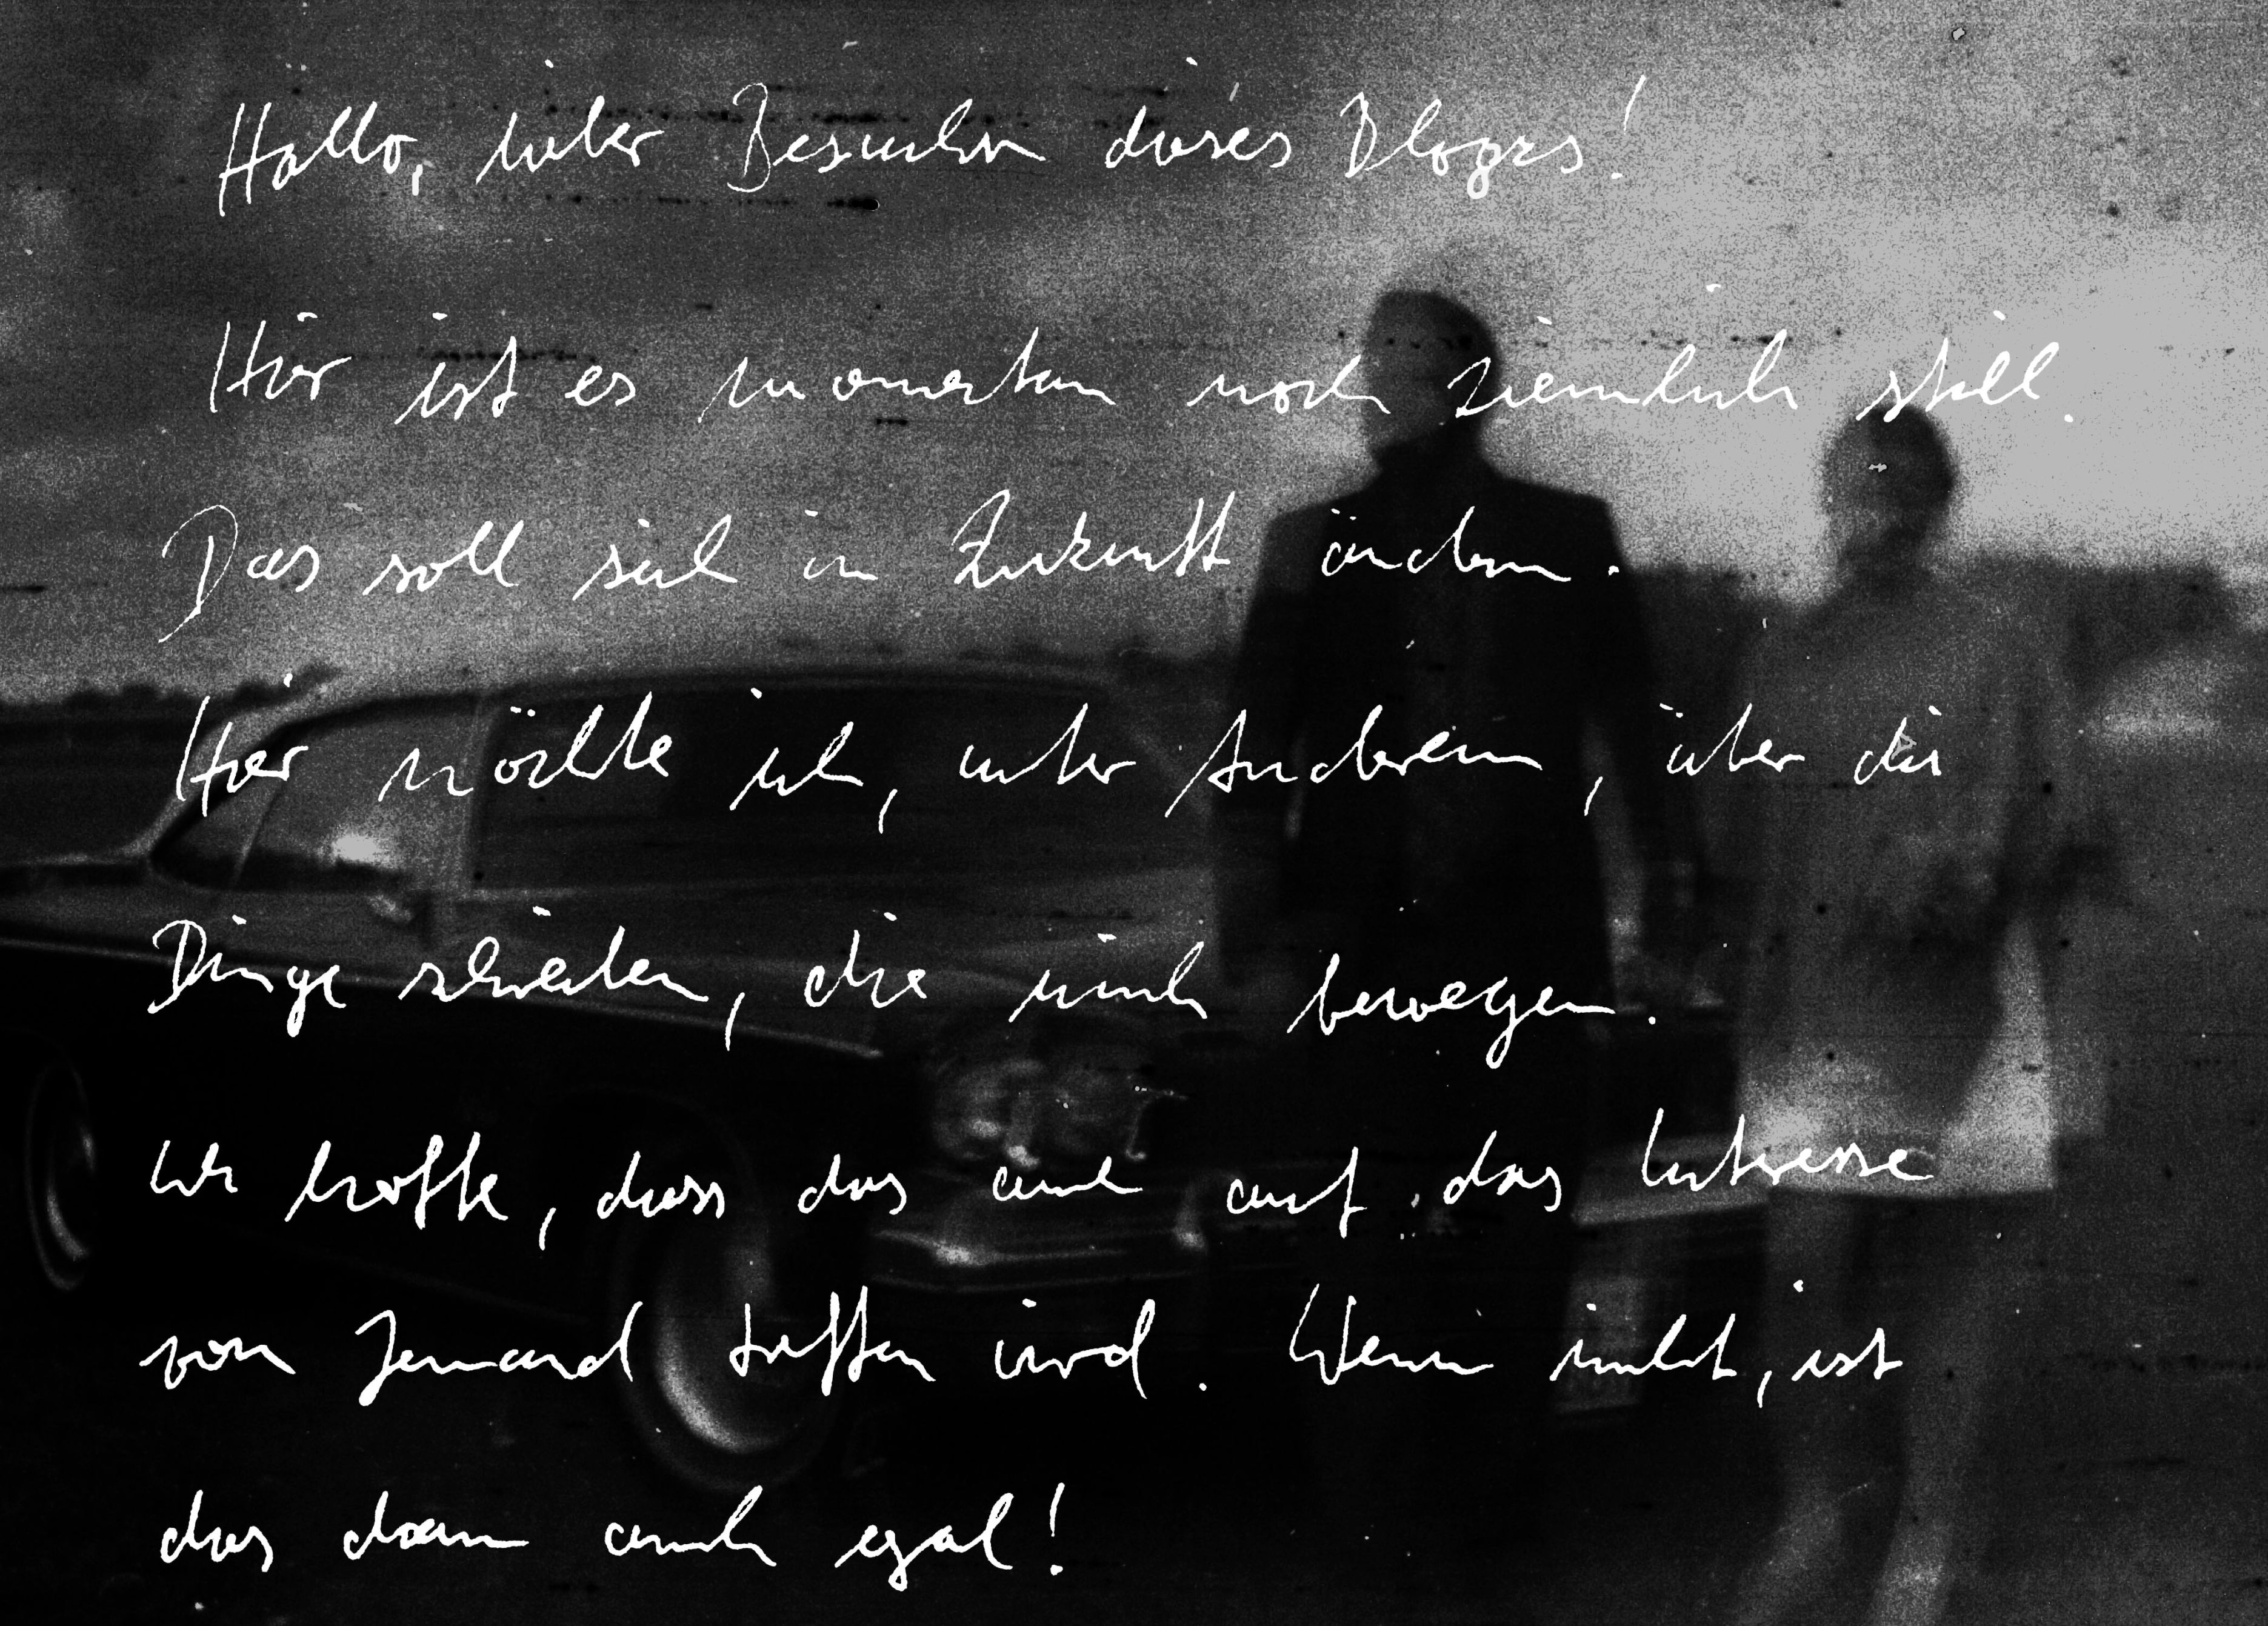 Hallo, lieber Besucher dieses Bloges!
Hier ist es momentan noch ziemlich still.
Das soll sich in Zukunft ändern.
Hier möchte ich, unter Anderem, über die
Dinge schreiben, die mich bewegen.
Ich hoffe, dass das auch auf das Interesse
von Jemand treffen wird. Wenn nicht, ist
das dann auch egal!